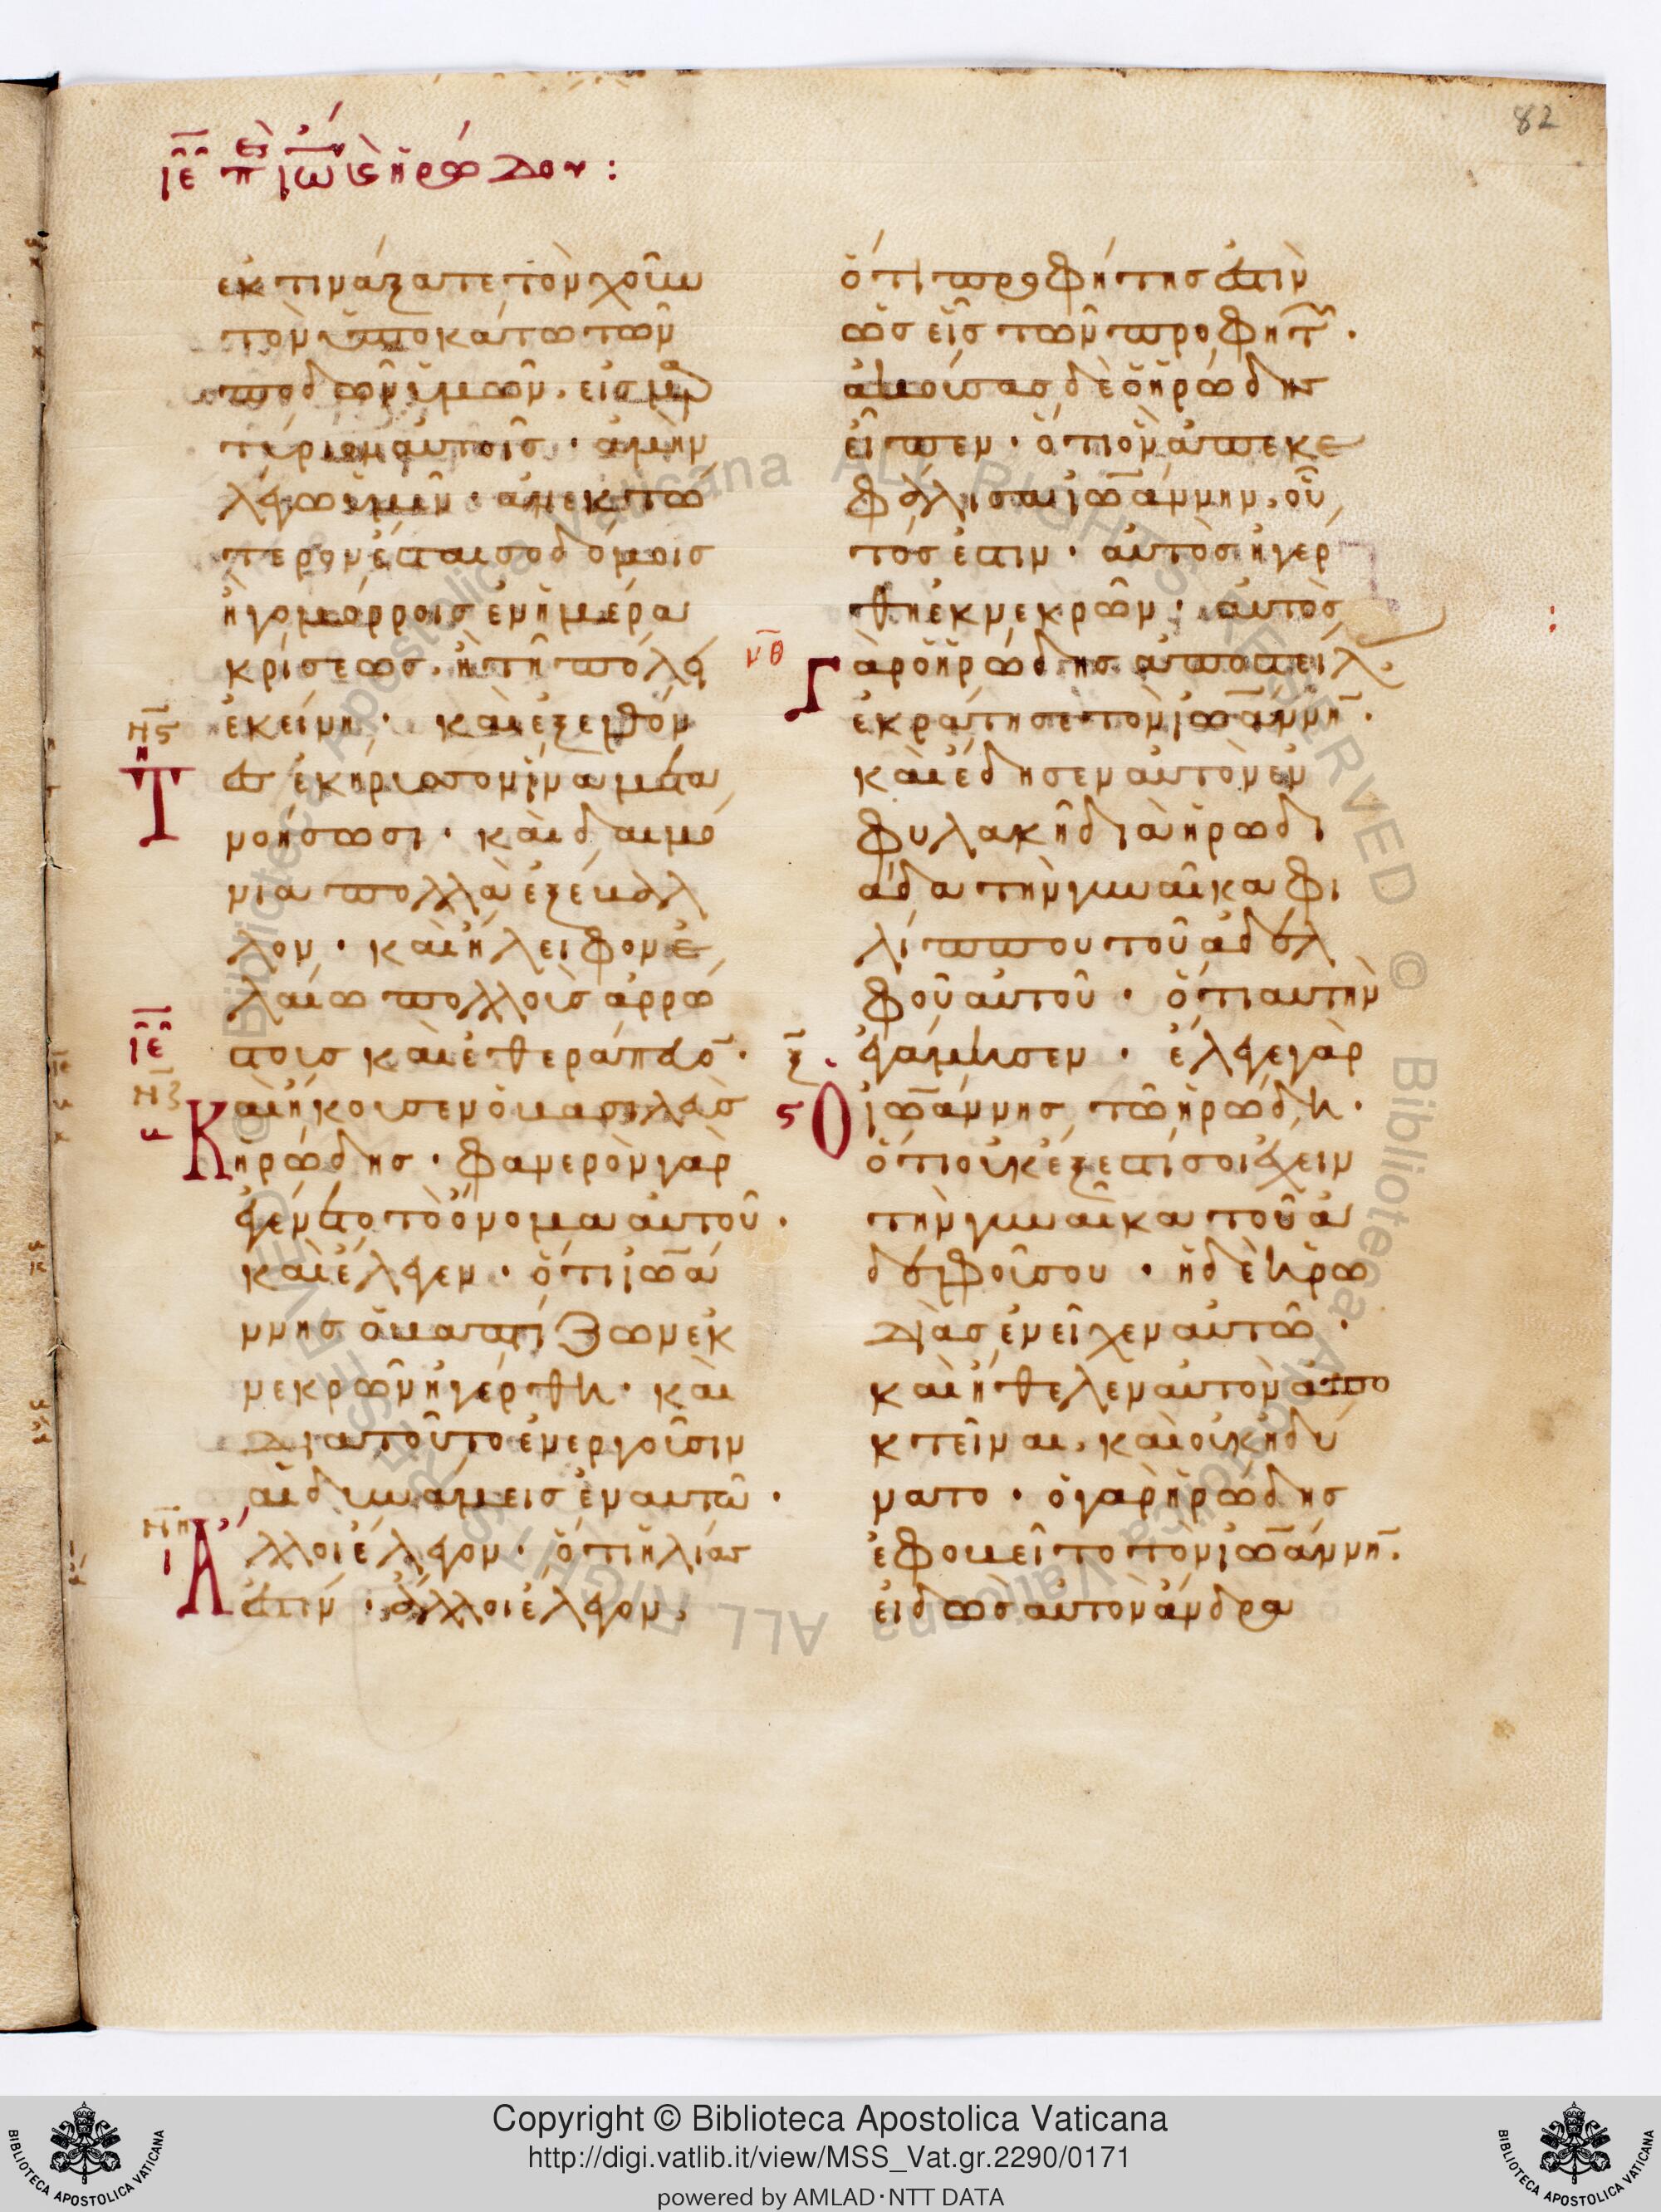 82
ιε π ιω κ ηρωδου :
εκτινάξατε τὸν χοῦν
τὸν ὑποκάτω τῶν
ποδῶν ὑμῶν. εἰς μαρ
τύριον αὐτοῖς · ἀμὴν
λέγω ὑμῖν · ἀνεκτώ
τερον ἔσται σοδόμοις
ἢ γομόρροις ἐν ἡμέρα
κρίσεως. ἢ τῆ πόλει
ἐκείνη · καὶ ἐξελθόν
τες ἐκήρυσσον ἵνα μετα
νοήσωσι · καὶ δαιμό
νια πολλὰ ἐξέβαλ
λον · καὶ ἤλειφον ἐ
λαίω πολλοὺς ἀρρώ
στους καὶ ἐθεράπευο̅ ·
Καὶ ἤκουσεν ὁ βασιλεὺς
ἡρώδης · φανερὸν γὰρ
ἐγένετο τὸ ὄνομα αὐτοῦ ·
καὶ ἔλεγεν · ὅτι ἰωά
ννης ὁ βαπτίζων ἐκ
νεκρῶν ἠγέρθη · καὶ
διατοῦτο ἐνεργοῦσιν
αἱ δυνάμεις ἐν αὐτῶ ·
Ἄλλοι ἔλεγον · ὅτι ἠλίας
ἐστίν · ἄλλοι ἔλεγον,
ὅτι προφήτης ἐστὶν
ὡς εἷς τῶν προφητῶν ·
ἀκούσας δὲ ὁ ἡρώδης
εἶπεν · ὅτι ὃν ἀπεκε
φάλισα ἰωάννην, οὗ
τός ἐστιν · αὐτὸς ἠγέρ
θη ἐκ νεκρῶν · αὐτὸς
νθ Γὰρ ὁ ἡρώδης ἀποστείλας
ἐκράτησε τὸν ἰωάννη̅ ·
καὶ ἔδησεν αὐτὸν ἐν
φυλακῆ διὰ ἡρωδι
άδα τὴν γυναῖκα φι
λίππου τοῦ ἀδελ
φοῦ αὐτοῦ · ὅτι αυτὴν
ἐγάμησεν · ἔλεγε γὰρ
Ὁ ἰωάννης τῶ ἡρώδη ·
ὅτι οὐκ ἔξεστί σοι ἔχειν
τὴν γυναῖκα τοῦ ἀ
δελφοῦ σου · ἡ δὲ ἡρω
διὰς ἐνεῖχεν αὐτῶ ·
καὶ ἤθελεν αὐτὸν ἀπο
κτεῖναι, καὶ οὐκ ἠδύ
νατο · ὁ γὰρ ἡρώδης
ἐφοβεῖτο τὸν ἰωάννη̅ ·
εἰδὼς αὐτὸν ἄνδρα
Copyright © Biblioteca Apostolica Vaticana
http://digi.vatlib.it/view/MSS_Vat.gr.2290/0171
powered by AMLAD·NTT DATA
BIBLIOTECA APOSTOLICA VATICANA
BIBLIOTECA APOSTOLICA VATICANA